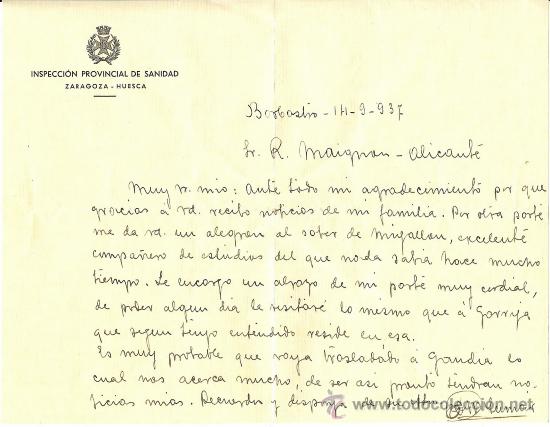 INSPECCIÓN PROVINCIAL DE SANIDAD
ZARAGOZA - HUESCA
Barbastro - 14-9-937
Sr. R. Maignon - Alicante
Muy sr. mio: Ante todo mi agradecimiento por que
gracias á vd. recibo noticias de mi familia. Por otra parte
me da vd. un alegron al saber de Migallon, excelente
compañero de estudios del que nada sabia hace mucho
tiempo. Le encargo un abrazo de mi parte muy cordial,
de poder algun dia le visitaré lo mismo que á Gorriza
que segun tengo entendido reside en esa.
Es muy probable que vaya trasladado á Gandia lo
cual nos acerca mucho, de ser asi pronto tendran no-
ticias mias. Recuerdos y disponga de su
www.todocoleccion.net